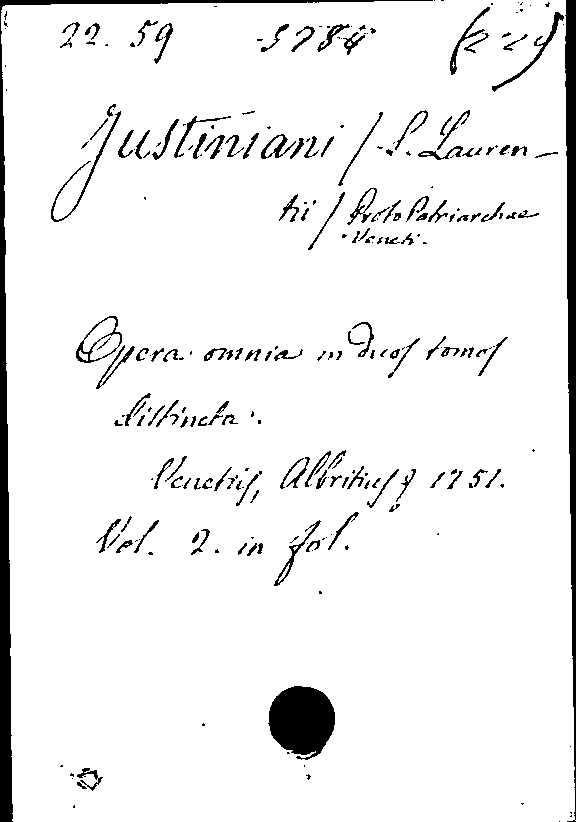 22. 59 5784 (224)
Justiniani / S. Lauren-
tii / ProtoPatriarchae
Veneti.
Opera omnia in duos tomos
distincta.
Venetiis, Albritius 1751.
Vol. 2. in fol.